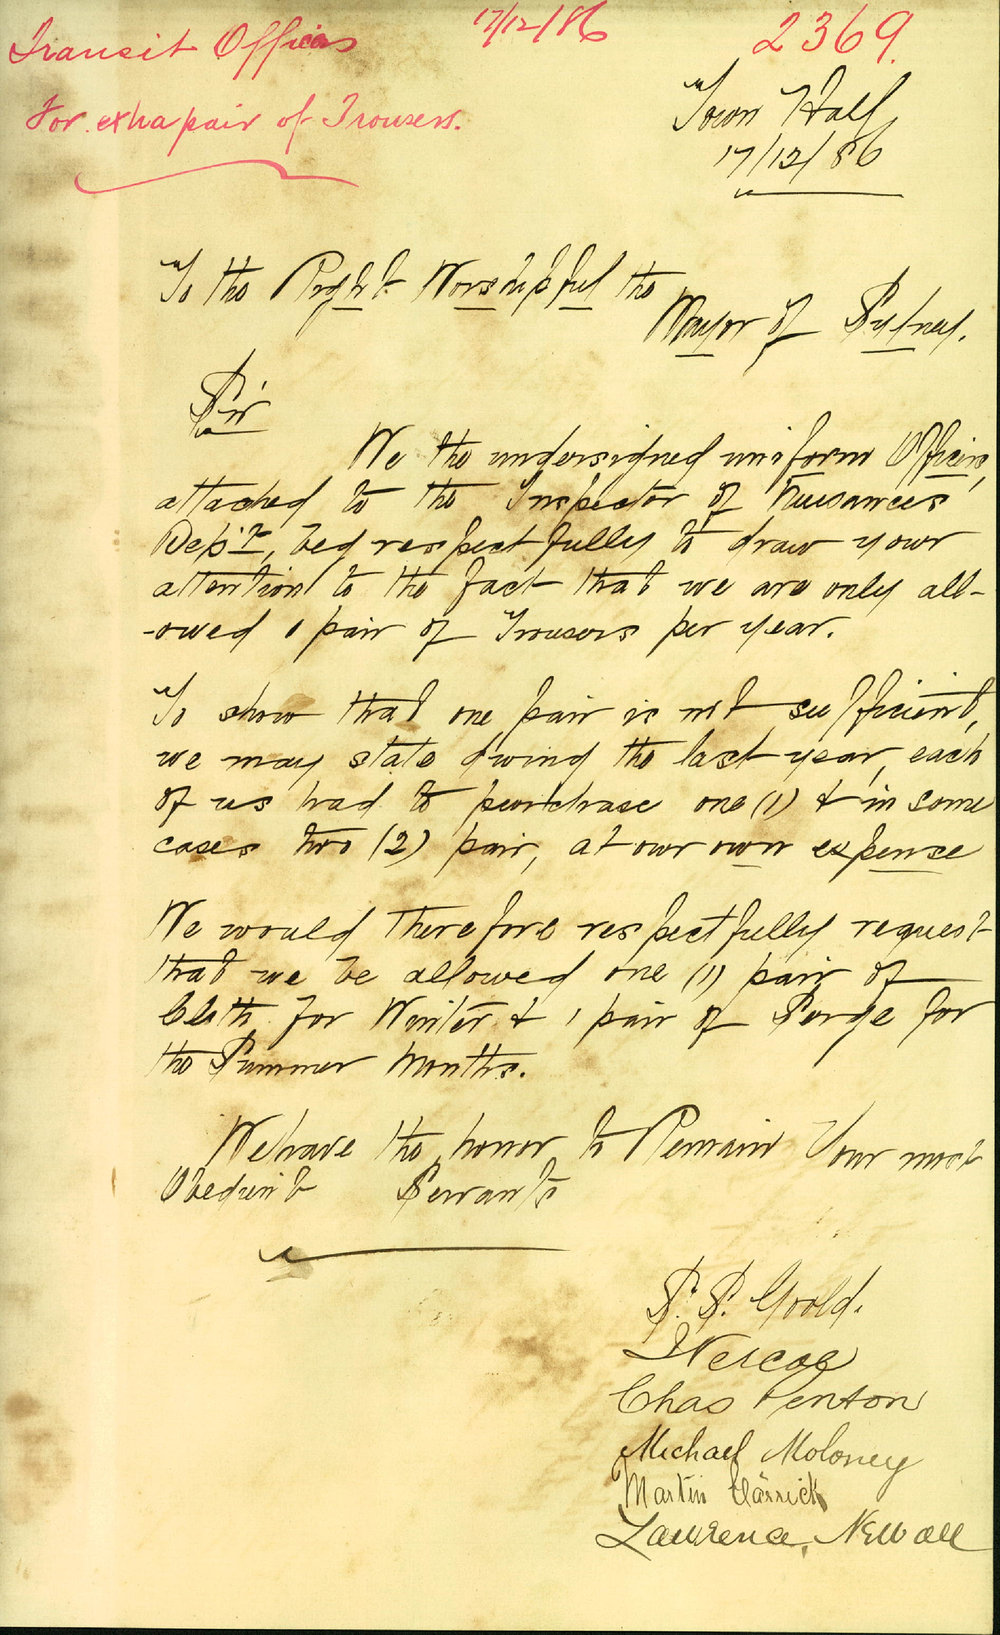 Transit Officers
17/12/86
2369.
For extra pair of Trousers.
Town Hall
17/12/86
To the Right Worshipful the
Mayor of Sydney.
Sir
We the undersigned uniform Officers,
attached to the Inspector of Nuisances
Dept., beg respectfully to draw your
attention to the fact that we are only all-
-owed 1 pair of Trousers per year.
To show that one pair is not sufficient,
we may state during the last year, each
of us had to purchase one (1) & in some
cases two (2) pair, at our own expense
We would therefore respectfully request
that we be allowed one (1) pair of
Cloth for Winter & 1 pair of Serge for
the Summer Months.
We have the honor to Remain Your most
Obedient Servants
S. S. Goold.
Chas Penton
Michael Moloney
Martin Carrick
Lawrence, Newall